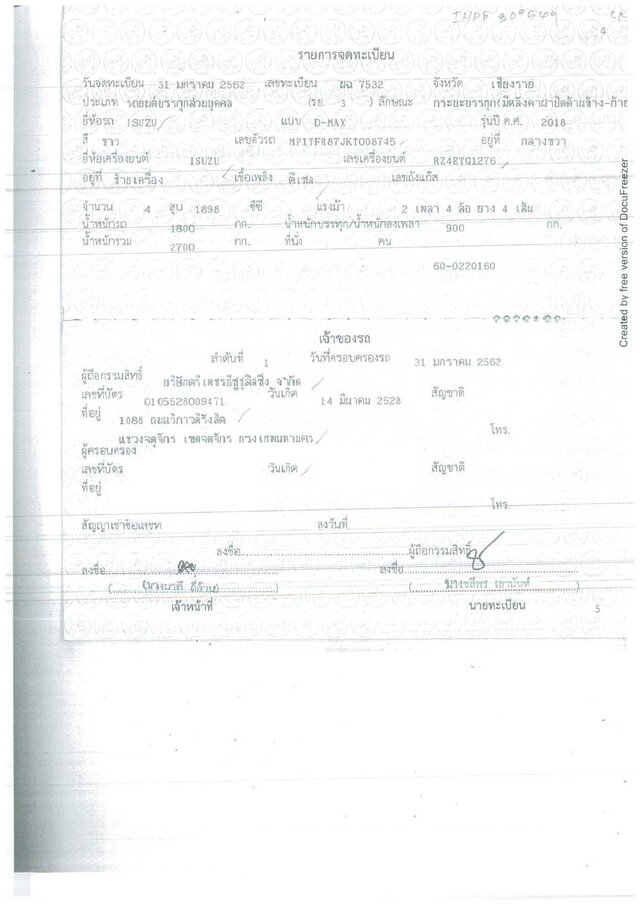 IHPF 309549 CR
4
รายการจดทะเบียน
วันจดทะเบียน 31 มกราคม 2562 เลขทะเบียน ผฉ 7532 จังหวัด เชียงราย
ประเภท รถยนต์บรรทุกส่วนบุคคล (รย. 3 ) ลักษณะ กระบะบรรทุก(มีหลังคาฝาปิดด้านข้าง-ท้าย
ยี่ห้อรถ ISUZU แบบ D-MAX รุ่นปี ค.ศ. 2018
สี ขาว เลขตัวรถ MP1TFR87JKT008745 อยู่ที่ กลางขวา
ยี่ห้อเครื่องยนต์ ISUZU เลขเครื่องยนต์ RZ4ETG1276
อยู่ที่ ซ้ายเครื่อง เชื้อเพลิง ดีเซล เลขถังแก๊ส
จำนวน 4 สูบ 1898 ซีซี แรงม้า 2 เพลา 4 ล้อ ยาง 4 เส้น
น้ำหนักรถ 1800 กก. น้ำหนักบรรทุก/น้ำหนักลงเพลา 900 กก.
น้ำหนักรวม 2700 กก. ที่นั่ง คน
60-0220160
เจ้าของรถ
ลำดับที่ 1 วันที่ครอบครองรถ 31 มกราคม 2562
ผู้ถือกรรมสิทธิ์ บริษัทตรีเพชรอีซูซุลิสซิ่ง จำกัด
เลขที่บัตร 0105528009471 วันเกิด 14 มีนาคม 2528 สัญชาติ
ที่อยู่ 1088 ถนนวิภาวดีรังสิต
แขวงจตุจักร เขตจตุจักร กรุงเทพมหานคร โทร.
ผู้ครอบครอง
เลขที่บัตร วันเกิด สัญชาติ
ที่อยู่
โทร.
สัญญาเช่าซื้อเลขที่ ลงวันที่
ลงชื่อ ผู้ถือกรรมสิทธิ์
ลงชื่อ ลงชื่อ
เจ้าหน้าที่ นายทะเบียน
5
Created by free version of DocuFreezer